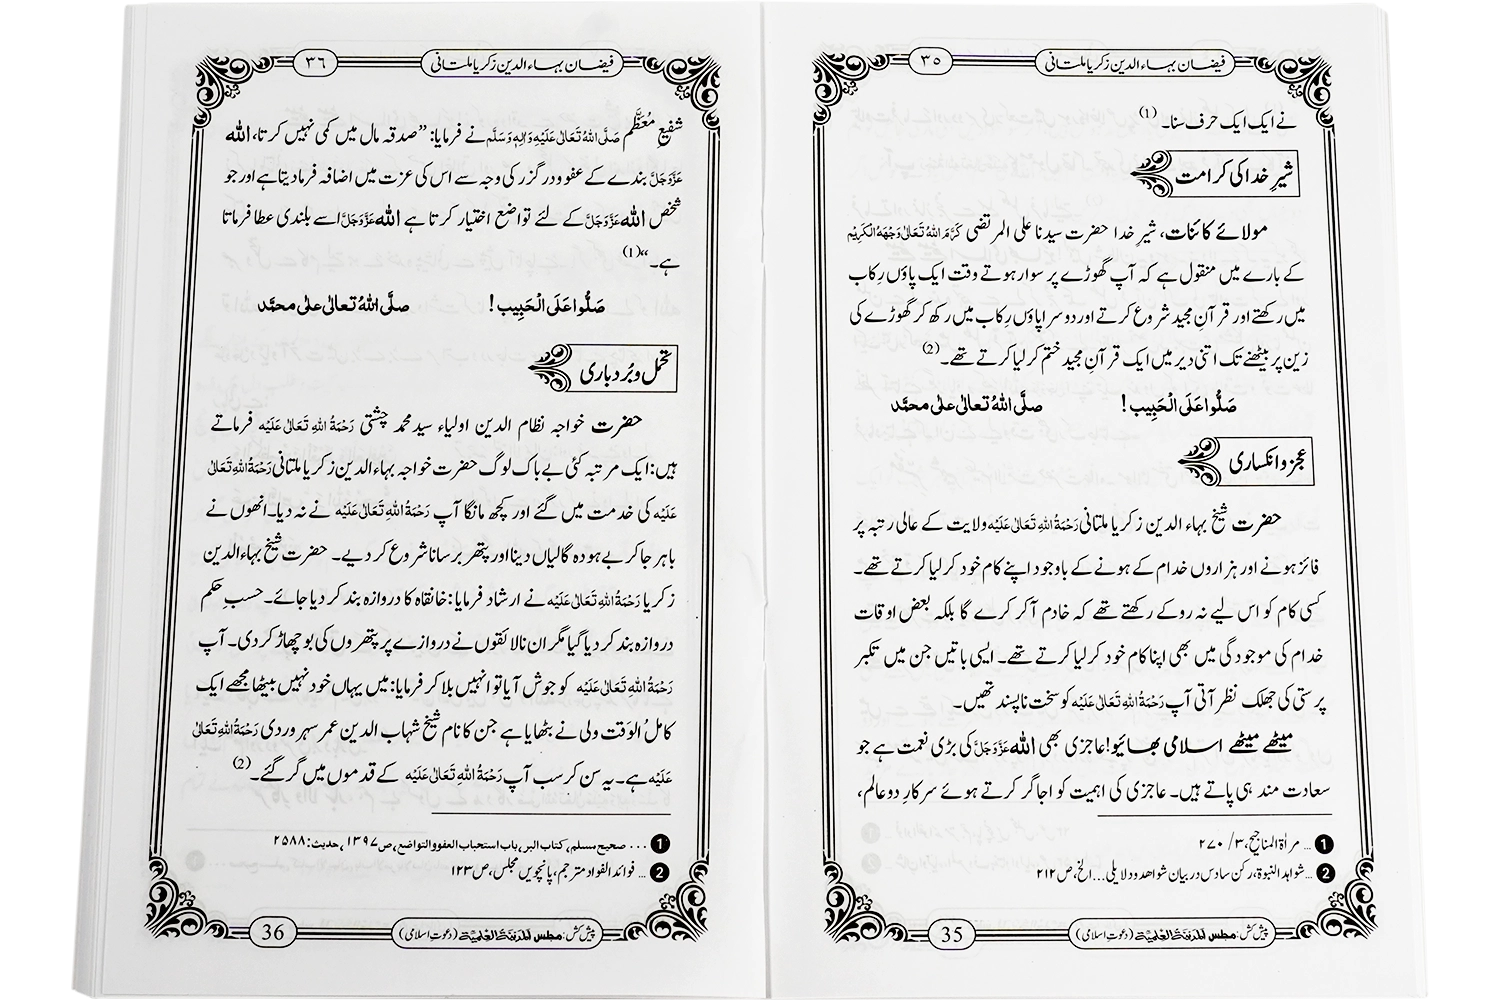 فیضان بہاءالدین زکریا ملتانی
۳۵
نے ایک ایک حرف سنا۔ (1)
شیرِ خدا کی کرامت
مولائے کائنات، شیرِ خدا حضرت سیدنا علی المرتضی کَرَّمَ اللہُ تَعَالٰی وَجْهَهُ الْكَرِیْم
کے بارے میں منقول ہے کہ آپ گھوڑے پر سوار ہوتے وقت ایک پاؤں رِکاب
میں رکھتے اور قرآنِ مجید شروع کرتے اور دوسرا پاؤں رِکاب میں رکھ کر گھوڑے کی
زین پر بیٹھنے تک اتنی دیر میں ایک قرآنِ مجید ختم کر لیا کرتے تھے۔ (2)
صَلُّوا عَلَی الْحَبِیب! صلَّی اللہُ تعالیٰ علیٰ محمَّد
عجز و انکساری
حضرت شیخ بہاء الدین زکریا ملتانی رَحْمَةُ اللہِ تَعَالٰی عَلَیْہ ولایت کے عالی رتبہ پر
فائز ہونے اور ہزاروں خدام کے ہونے کے باوجود اپنے کام خود کر لیا کرتے تھے۔
کسی کام کو اس لیے نہ روکے رکھتے تھے کہ خادم آ کر کرے گا بلکہ بعض اوقات
خدام کی موجودگی میں بھی اپنا کام خود کر لیا کرتے تھے۔ ایسی باتیں جن میں تکبر
پرستی کی جھلک نظر آتی آپ رَحْمَةُ اللہِ تَعَالٰی عَلَیْہ کو سخت ناپسند تھیں۔
میٹھے میٹھے اسلامی بھائیو! عاجزی بھی اللہ عَزَّوَجَلَّ کی بڑی نعمت ہے جو
سعادت مند ہی پاتے ہیں۔ عاجزی کی اہمیت کو اجاگر کرتے ہوئے سرکارِ دو عالم،
1 ... مراٰۃ المناجیح، ۳/ ۲۷۰
2 ... شواہد النبوۃ، رکن سادس در بیان شواھد و دلایلی ... الخ، ص ۲۱۲
پیش کش: مجلس المدینۃ العلمیۃ (دعوتِ اسلامی)
35
فیضان بہاءالدین زکریا ملتانی
۳۶
شفیعِ مُعظَّم صَلَّی اللہُ تَعَالٰی عَلَیْہِ وَاٰلِہٖ وَسَلَّم نے فرمایا: ”صدقہ مال میں کمی نہیں کرتا، اللہ
عَزَّوَجَلَّ بندے کے عفو و درگزر کی وجہ سے اس کی عزت میں اضافہ فرما دیتا ہے اور جو
شخص اللہ عَزَّوَجَلَّ کے لئے تواضع اختیار کرتا ہے اللہ عَزَّوَجَلَّ اسے بلندی عطا فرماتا
ہے۔“ (1)
صَلُّوا عَلَی الْحَبِیب! صلَّی اللہُ تعالیٰ علیٰ محمَّد
تحمل و بُردباری
حضرت خواجہ نظام الدین اولیاء سید محمد چشتی رَحْمَةُ اللہِ تَعَالٰی عَلَیْہ فرماتے
ہیں: ایک مرتبہ کئی بے باک لوگ حضرت خواجہ بہاء الدین زکریا ملتانی رَحْمَةُ اللہِ تَعَالٰی
عَلَیْہ کی خدمت میں گئے اور کچھ مانگا آپ رَحْمَةُ اللہِ تَعَالٰی عَلَیْہ نے نہ دیا۔ انھوں نے
باہر جا کر بے ہودہ گالیاں دینا اور پتھر برسانا شروع کر دیے۔ حضرت شیخ بہاء الدین
زکریا رَحْمَةُ اللہِ تَعَالٰی عَلَیْہ نے ارشاد فرمایا: خانقاہ کا دروازہ بند کر دیا جائے۔ حسبِ حکم
دروازہ بند کر دیا گیا مگر ان نالائقوں نے دروازے پر پتھروں کی بوچھاڑ کر دی۔ آپ
رَحْمَةُ اللہِ تَعَالٰی عَلَیْہ کو جوش آیا تو انہیں بلا کر فرمایا: میں یہاں خود نہیں بیٹھا مجھے ایک
کاملُ الوَقت ولی نے بٹھایا ہے جن کا نام شیخ شہاب الدین عمر سہروردی رَحْمَةُ اللہِ تَعَالٰی
عَلَیْہ ہے۔ یہ سن کر سب آپ رَحْمَةُ اللہِ تَعَالٰی عَلَیْہ کے قدموں میں گر گئے۔ (2)
1 ... صحیح مسلم، کتاب البر، باب استحباب العفو والتواضع، ص ۱۳۹۷، حدیث: ۲۵۸۸
2 ... فوائد الفواد مترجم، پانچویں مجلس، ص ۱۲۳
پیش کش: مجلس المدینۃ العلمیۃ (دعوتِ اسلامی)
36